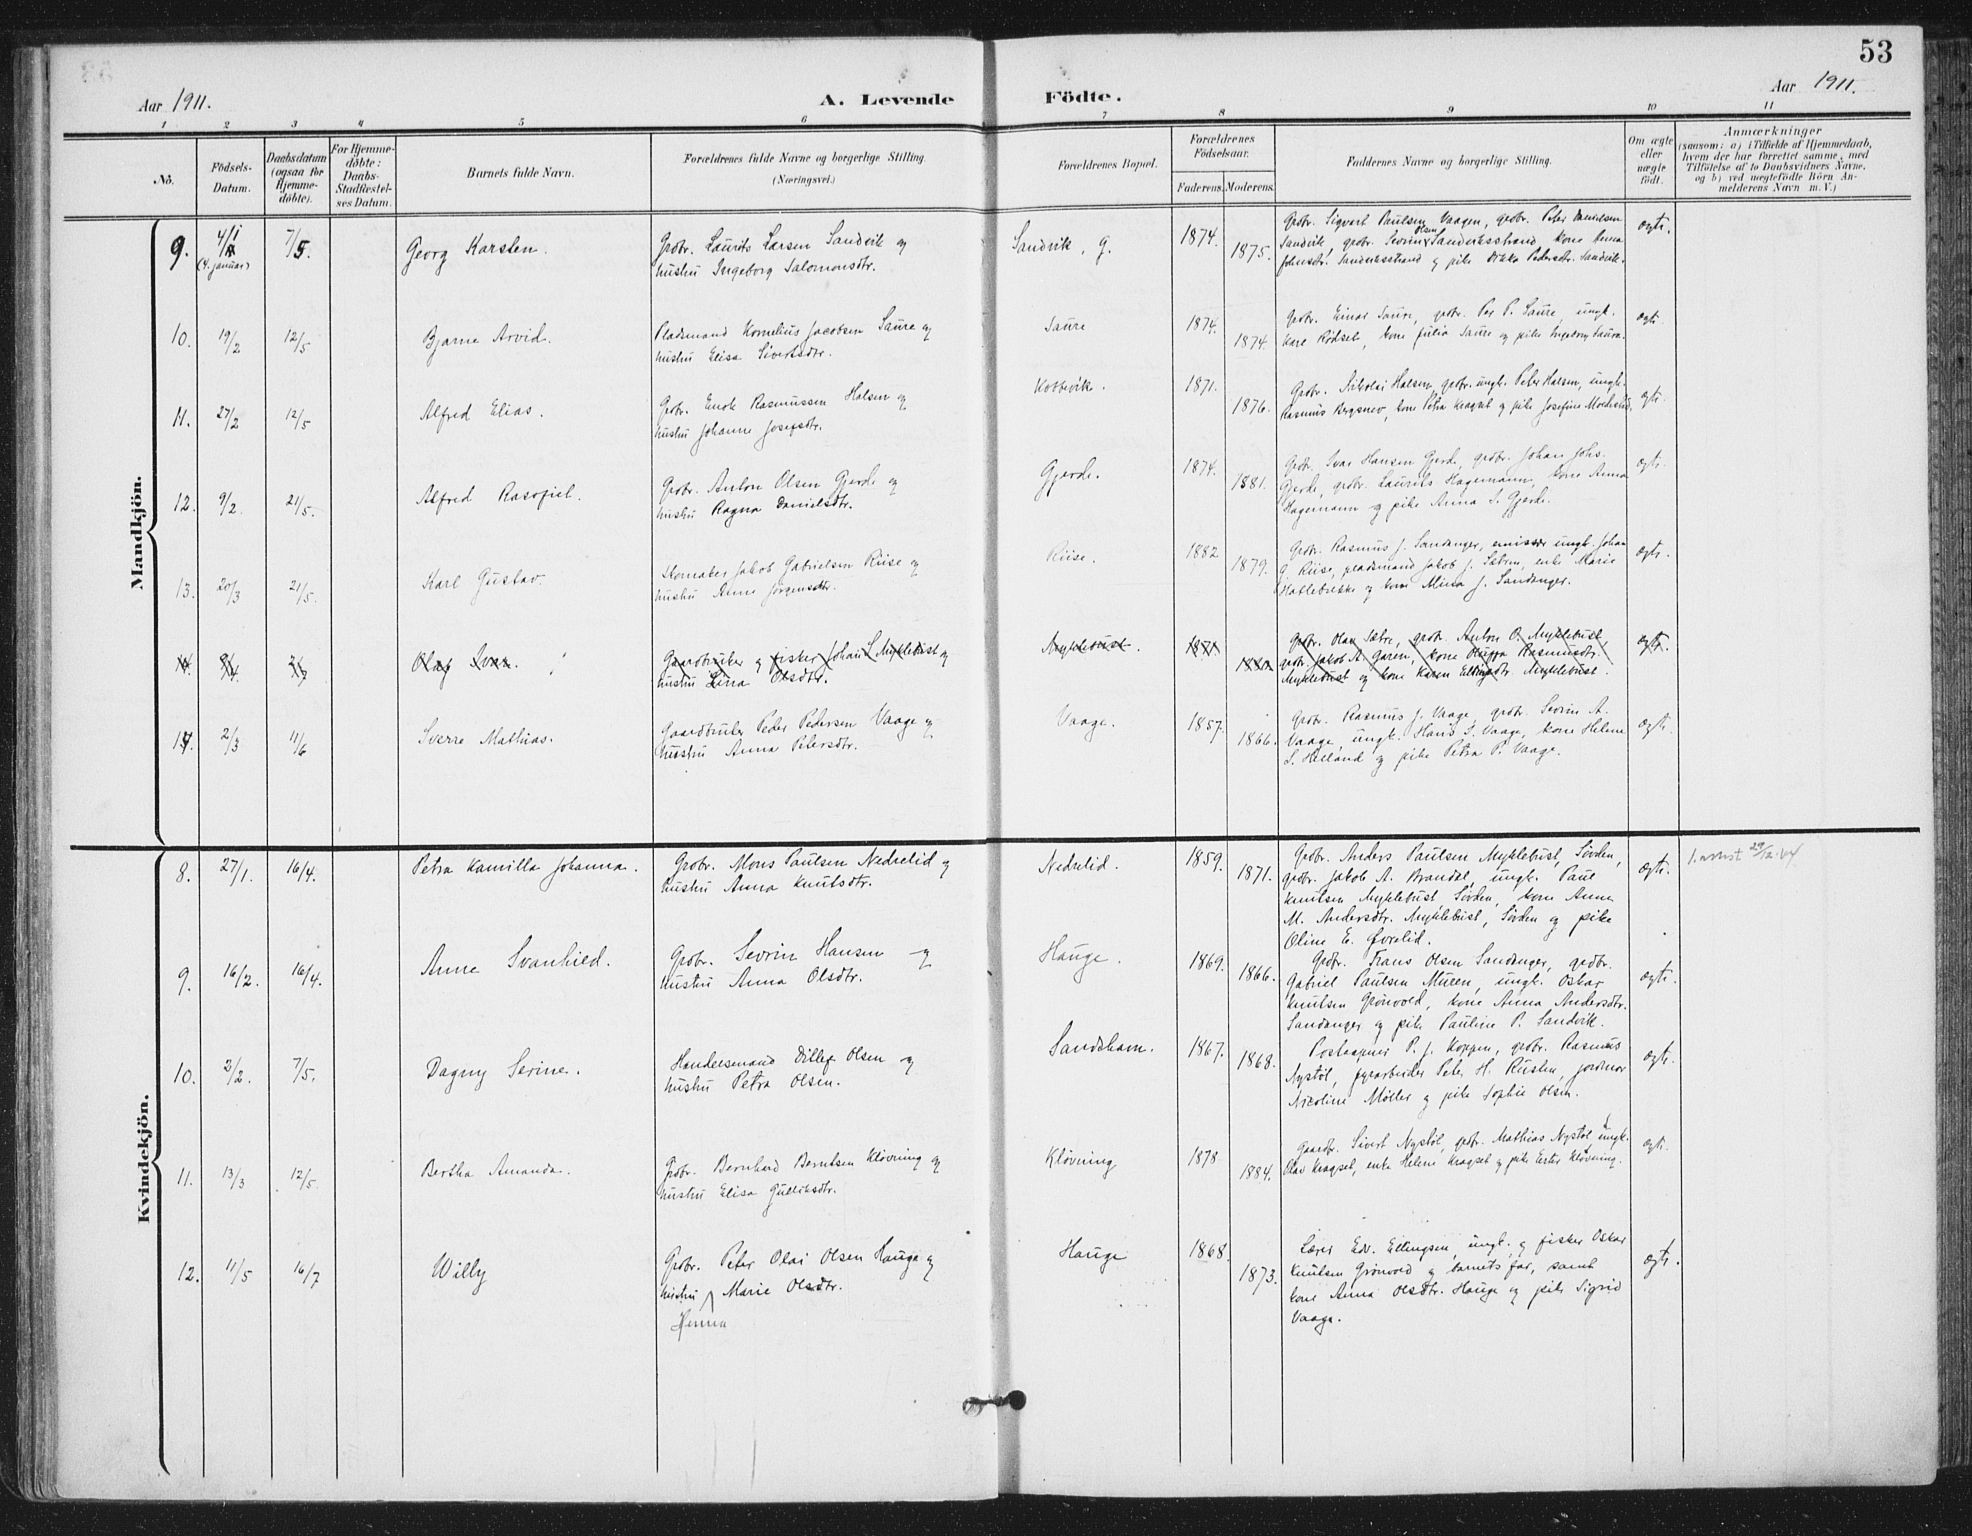 53
Aar 1911.
A. Levende Födte.
Aar 1911.
1 2 3 4 5 6 7 8 9 10 11
No.
Födsels-Datum.
Daabsdatum (ogsaa for Hjemme-döbte).
For Hjemme-döbte: Daabs-Stadfæstel-ses Datum.
Barnets fulde Navn.
Forældrenes fulde Navne og borgerlige Stilling.
(Næringsvei.)
Forældrenes Bopæl.
Forældrenes Födselsaar.
Faderens. Moderens.
Faddernes Navne og borgerlige Stilling.
Om ægte eller uægte födt.
Anmærkninger
(saasom: a) i Tilfælde af Hjemmedaab,
hvem der har forrettet samme, med
Tilföielse af to Daabsvidners Navne,
og b) ved uægtefödte Börn An-
melderens Navn m. V.)
Mandkjön.
9. 4/1 (4. januar) 7/5. Georg Karsten.
Grdbr. Laurits Larsen Sandvik og
hustru Ingeborg Salomonsdtr.
Sandvik, G. 1874. 1875.
Grdbr. Sigvart Paulsen Vaagen, grdbr. Peter Danielsen
Sandvik, grdbr. Sevrin Olsen Sandviksstrand, kone Anna
Johnsdtr. Sandviksstrand og pike Pedersdtr. Sandvik.
ægte.
10. 19/2 12/5 Bjarne Arvid.
Pladsmand Kornelius Jacobsen Saure og
hustru Elisa Sivertsdtr.
Saure 1874. 1874.
Grdbr. Einar Saure, grdbr. Per P. Saure, ungk.
Karl Rødset, kone Julia Saure og pike Ingeborg Saure.
ægte.
11. 27/2 12/5 Alfred Elias.
Grdbr. Enok Rasmussen Halsen og
hustru Johanne Josefsdtr.
Kobbevik. 1871. 1876.
Grdbr. Nikolai Halsen, grdbr. ungk. Peter Halsen, ungk.
Rasmus Bergsnev, kone Petra Kragset og pike Josefine
ægte.
12. 9/2. 21/5. Alfred Rasofiel.
Grdbr. Anton Olsen Gjerde og
hustru Ragna Danielsdtr.
Gjerde. 1874. 1881.
Grdbr. Ivar Hansen Gjerde, grdbr. Johan Johs.
Gjerde, grdbr. Laurits Hagemann, kone Anna
Hagemann og pike Anna S. Gjerde.
ægte.
13. 20/3 21/5. Karl Gustav.
Skomaker Jakob Gabrielsen Riise og
hustru Anne Jørgensdtr.
Riise. 1882 1879.
Grdbr. Rasmus J. Sandanger, emissær ungk. Johan
G. Riise, pladsmand Jakob J. Sæbra, enke Marie
Hatlebrække og kone Mina J. Sandanger.
ægte.
14. Olaf Ivar.
Gaardbruker og fisker Johan L. Myklebust og
hustru Lina Olsdtr.
Myklebust. 1871 1880
Grdbr. Olav Sætre, grdbr. Anton O. Myklebust,
grdbr. Jakob A. Garen, kone Oluffa Rasmusdtr.
Myklebust og kone Karen Ellingsdtr. Myklebust.
ægte.
14. 2/3 11/6 Sverre Mathias.
Gaardbruker Peder Pedersen Vaage og
hustru Anna Petersdtr.
Vaage. 1857. 1866.
Grdbr. Rasmus J. Vaage, grdbr. Sevrin A.
Vaage, ungk. Hans S. Vaage, kone Helene
S. Heiland og pike Petra P. Vaage.
ægte.
Kvindekjön.
8. 27/1. 16/4. Petra Kamilla Johanna.
Grdbr. Mons Paulsen Nedrelid og
hustru Anna Knutsdtr.
Nedrelid. 1859. 1871.
Grdbr. Anders Paulsen Myklebust, Sørden,
grdbr. Jakob A. Brandal, ungk. Paul
Knutsen Myklebust Sørden, kone Anne
M. Andersdtr. Myklebust, Sørden og pike
Oline E. Øvrelid.
ægte.
9. 16/2. 16/4. Anne Svanhild.
Grdbr. Sevrin Hansen og
hustru Anna Olsdtr.
Hauge. 1869. 1866.
Grdbr. Frans Olsen Sandanger, grdbr.
Gabriel Paulsen Muren, ungk. Oskar
Knutsen Grönvold, kone Anna Andersdtr.
Sandanger og pike Pauline P. Sandvik.
ægte.
10. 2/2. 7/5. Dagny Serine.
Handelsmand Ditlef Olsen og
hustru Petra Olsen.
Sandshamn. 1867. 1868.
Postaapner P. J. Koppen, grdbr. Rasmus
Nystöl, fyrarbeider Peter H. Riisten, jordmor
Nicoline Møller og pike Sophie Olsen.
ægte.
11. 13/3 12/5. Bertha Amanda.
Grdbr. Bernhard Berntsen Kløvning og
hustru Elisa Gulliksdtr.
Kløvning 1878 1884.
Gaardbr. Sivert Nystøl, grdbr. Mathias Nystøl, ungk.
Olav Kragset, enke Helene Kragset og pike Ester Kløvning.
ægte.
12. 11/5 16/7 Willy
Grdbr. Peter Olai Olsen Hauge og
hustru Marie Olsdtr.
Hanna
Hauge 1868. 1873.
Lærer Edv. Ellingsen, ungk. og fisker Oskar
Knutsen Grönvold og barnets far, samt
kone Anna Olsdtr. Hauge og pike Sigrid
Vaage.
ægte.